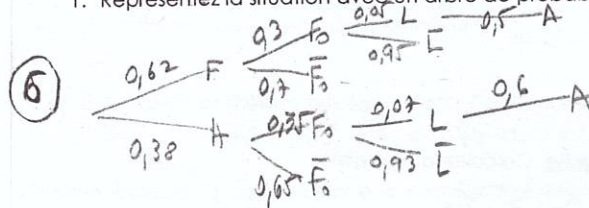 1. Représentez la situation avec un arbre de probabi
0,05 L 0,5 A
0,3 Fo 0,95 L̅
0,62 F 0,7 F̅o
5
0,38 H 0,35 Fo 0,07 L 0,6 A
0,93 L̅
0,65 F̅o